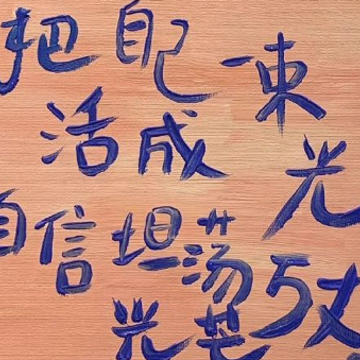 把自己
活成
一束
光
自信坦荡
光芒
万丈